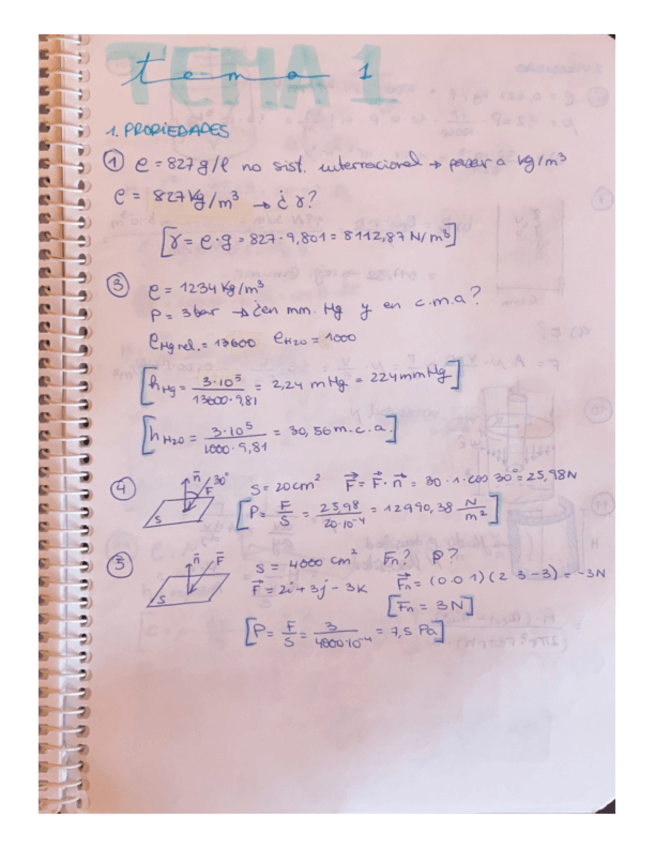 TEMA 1
tema 1
1. PROPIEDADES
① ρ = 827 g/l no sist. internacional → pasar a kg/m³
ρ = 827 Kg/m³ → ¿ γ?
[γ = ρ·g = 827·9,801 = 8112,87 N/m³]
③ ρ = 1234 Kg/m³
P = 3 bar → ¿en mm. Hg y en c.m.a?
ρHg rel. = 13600 ρH2O = 1000
[hHg = 3·10⁵ / 13600·9,81 = 2,24 mHg = 224 mm Hg]
[hH2O = 3·10⁵ / 1000·9,81 = 30,56 m.c.a.]
④ n 30° F S S = 20 cm² F = F·n = 30·1·cos 30° = 25,98 N
[P = F/S = 25,98 / 20·10⁻⁴ = 12990,38 N/m²]
⑤ n F S S = 4000 cm² Fn? P?
F = 2i + 3j - 3k Fn = (0 0 1)(2 3 -3) = -3N
[Fn = 3N]
[P = F/S = 3 / 4000·10⁻⁴ = 7,5 Pa]